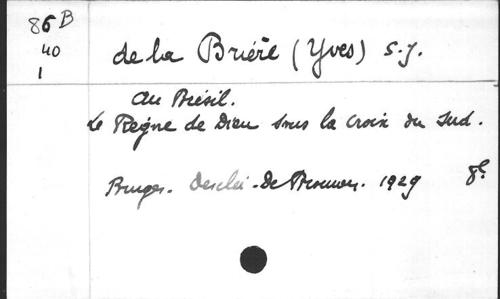 86 B
40
1
de la Brière (Yves) S.J.
Au Brésil.
Le Règne de Dieu sous la Croix du Sud.
Bruges. Desclée-De Brouwer. 1929 8°